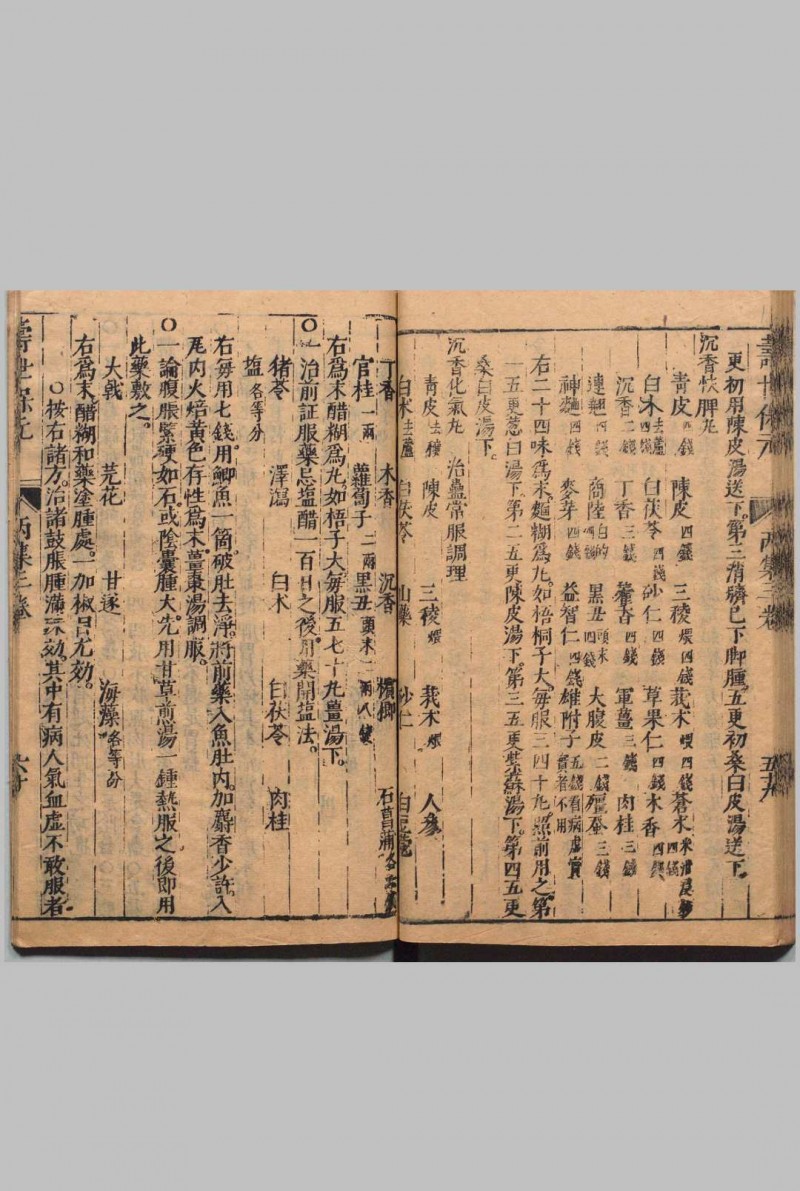 更初用陳皮湯送下。第三消臍已下脚腫。五更初桑白皮湯送下。
沉香快脾丸
青皮四錢 陳皮四錢 三稜煨四錢 莪朮煨四錢 蒼朮米泔浸炒四錢
白朮去蘆四錢 白茯苓四錢 砂仁四錢 草果仁四錢 木香四錢
沉香二錢 丁香三錢 藿香四錢 軍薑三錢 肉桂三錢
連翹四錢 商陸白的四錢 黑丑頭末四錢 大腹皮二錢 殭蚕三錢
神麯四錢 麥芽四錢 益智仁四錢 雄附子五錢看病虛實實者不用
右二十四味爲末。麵糊爲丸。如梧桐子大。毎服三四十丸。照前用之。第
一五更葱白湯下。第二五更陳皮湯下。第三五更紫蘇湯下。第四五更
桑白皮湯下。
沉香化氣丸 治蠱常服調理
青皮去穰 陳皮 三稜煨 莪朮煨 人參
白朮去蘆 白茯苓 山藥 砂仁 白豆蔻
丁香 木香 沉香 檳榔 石菖蒲
官桂一兩 蘿蔔子二兩 黑丑頭末二兩八錢
右爲末醋糊爲丸。如梧子大毎服五七十丸薑湯下。
○一治前証服藥忌塩醋一百日之後。用藥開塩法。
猪苓 澤瀉 白朮 白茯苓 肉桂
塩各等分
右毎用七錢。用鯽魚一箇。破肚去淨。將前藥入魚肚内。加麝香少許入
瓦内火焙黄色存性爲末。薑棗湯調服。
○一論腹脹緊硬如石。或陰囊腫大。先用甘草煎湯一鍾熱服之後即用
此藥敷之。
大戟 芫花 甘遂 海藻各等分
右爲末醋糊和藥塗腫處。一加椒目尤効。
○按右諸方。治諸鼓脹腫滿深効。其中有病人氣血虛不敢服者
壽世保元 丙集三卷